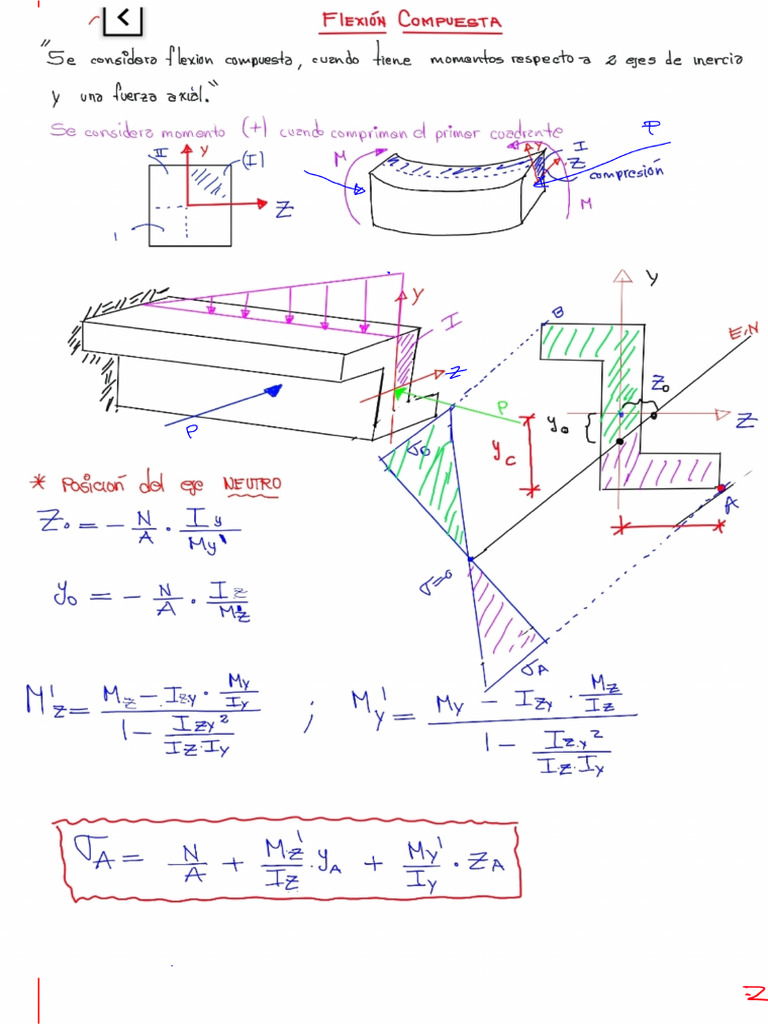 FLEXIÓN COMPUESTA
"Se considera flexion compuesta, cuando tiene momentos respecto a 2 ejes de inercia
y una fuerza axial."
Se considera momento (+) cuando compriman el primer cuadrante
II Y (I)
Z
M Y I P
Z
compresión
M
Y
I
Z
P
P
B
Y
E.N
Z₀
Z
y₀
y_c
σ_B
A
σ=0
σ_A
* Posición del eje NEUTRO
Z₀ = - N/A · Iy/My'
y₀ = - N/A · Iz/Mz'
M'z = (Mz - Izy · My/Iy) / (1 - Izy²/(Iz·Iy)) ; My' = (My - Izy · Mz/Iz) / (1 - Izy²/(Iz·Iy))
σ_A = N/A + Mz'/Iz · y_A + My'/Iy · z_A